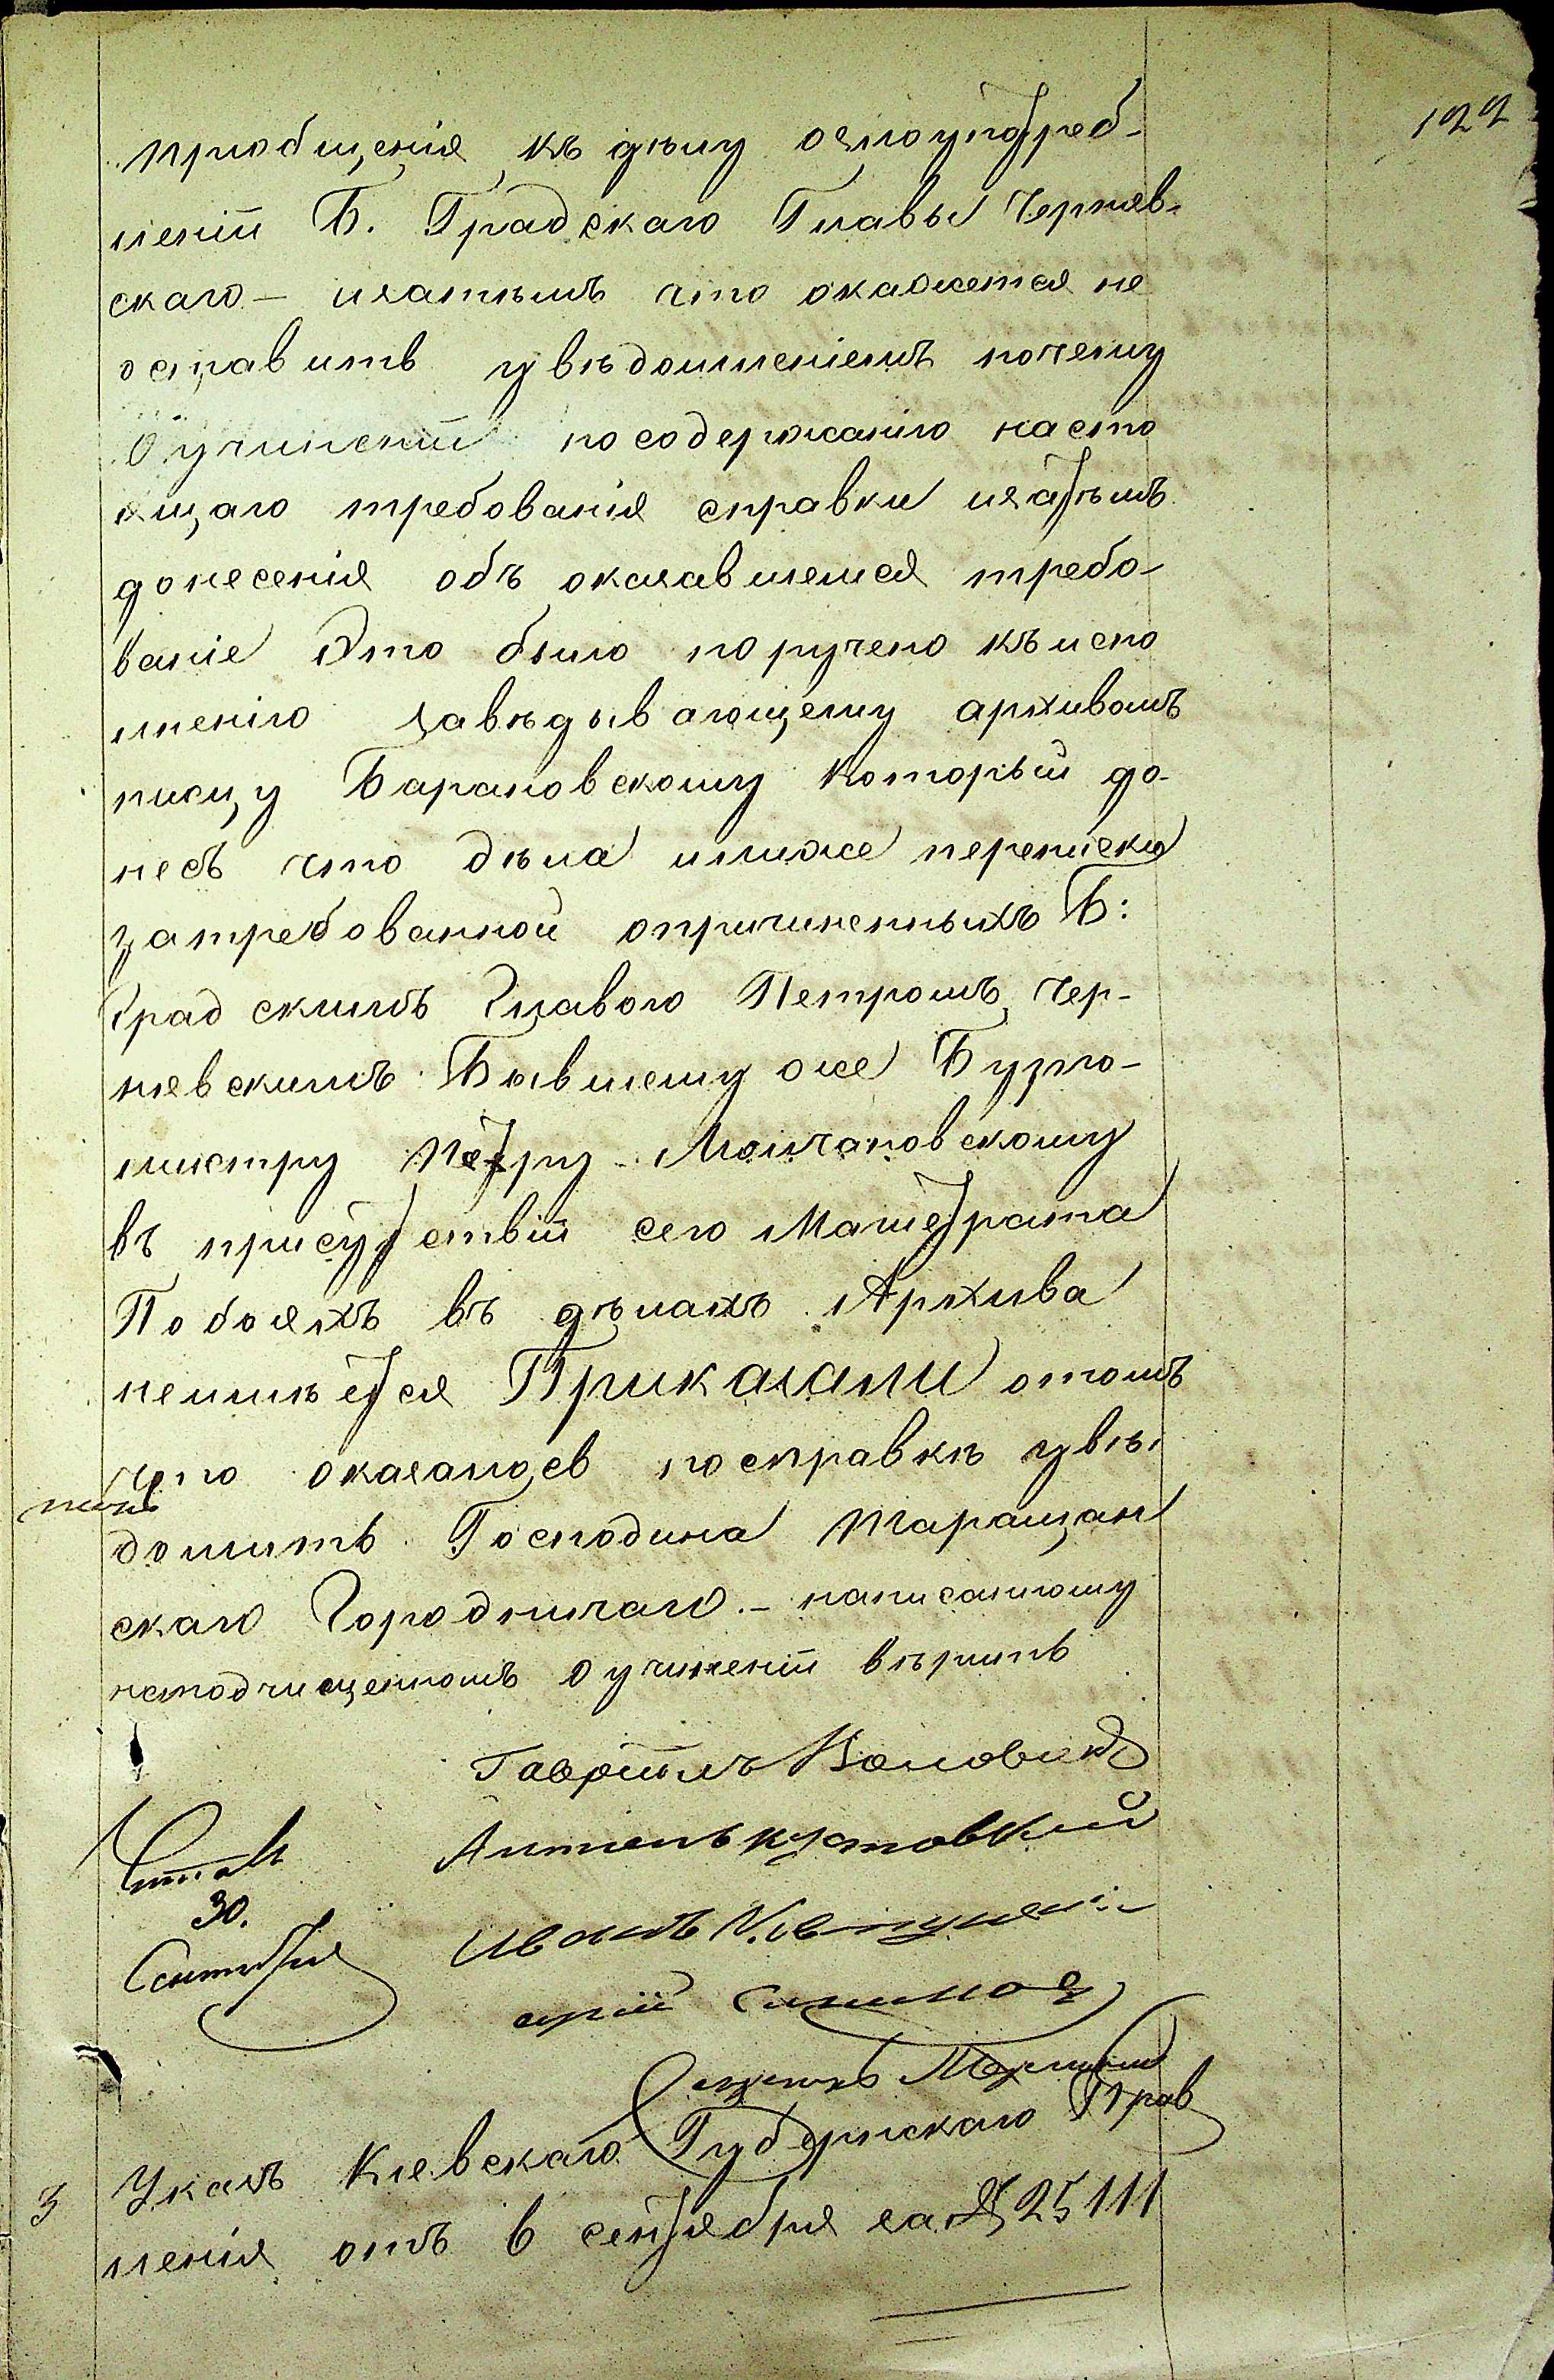 122
приобщенія къ дѣлу озлоупотреб-
леніи Б. Градскаго Главы Черняв-
скаго — изатѣмъ что окажется не
оставить увѣдомленіемъ почему
Оучиненіи посодержанію насто
ящаго требованія справки изатѣмъ
донесенія объ оказавшемся требо-
ваніе Это было поручено къиспо
лненію завѣдывающему архивомъ
писцу Барановскому который до-
несъ что дѣла илиже переписки
затребованной опричиненныхъ Б:
Градскимъ Главою Петромъ Чер-
нявскимъ Бывшему же Бурго-
мистру Петру Молчановскому
въ присутствіи сего Магистрата
Побояхъ въ дѣлахъ Архива
неимѣется Приказали отомъ
что оказалось посправкѣ увѣ-
домить Господина Таращан
скаго Городничаго. — написанному
наподчищенномъ Оучиненіи вѣрить
Гавріилъ
Антонъ
30.
Сентября
Иванъ
Указъ Кіевскаго Губернскаго Прав
3
ленія отъ 6 сентября за № 25111